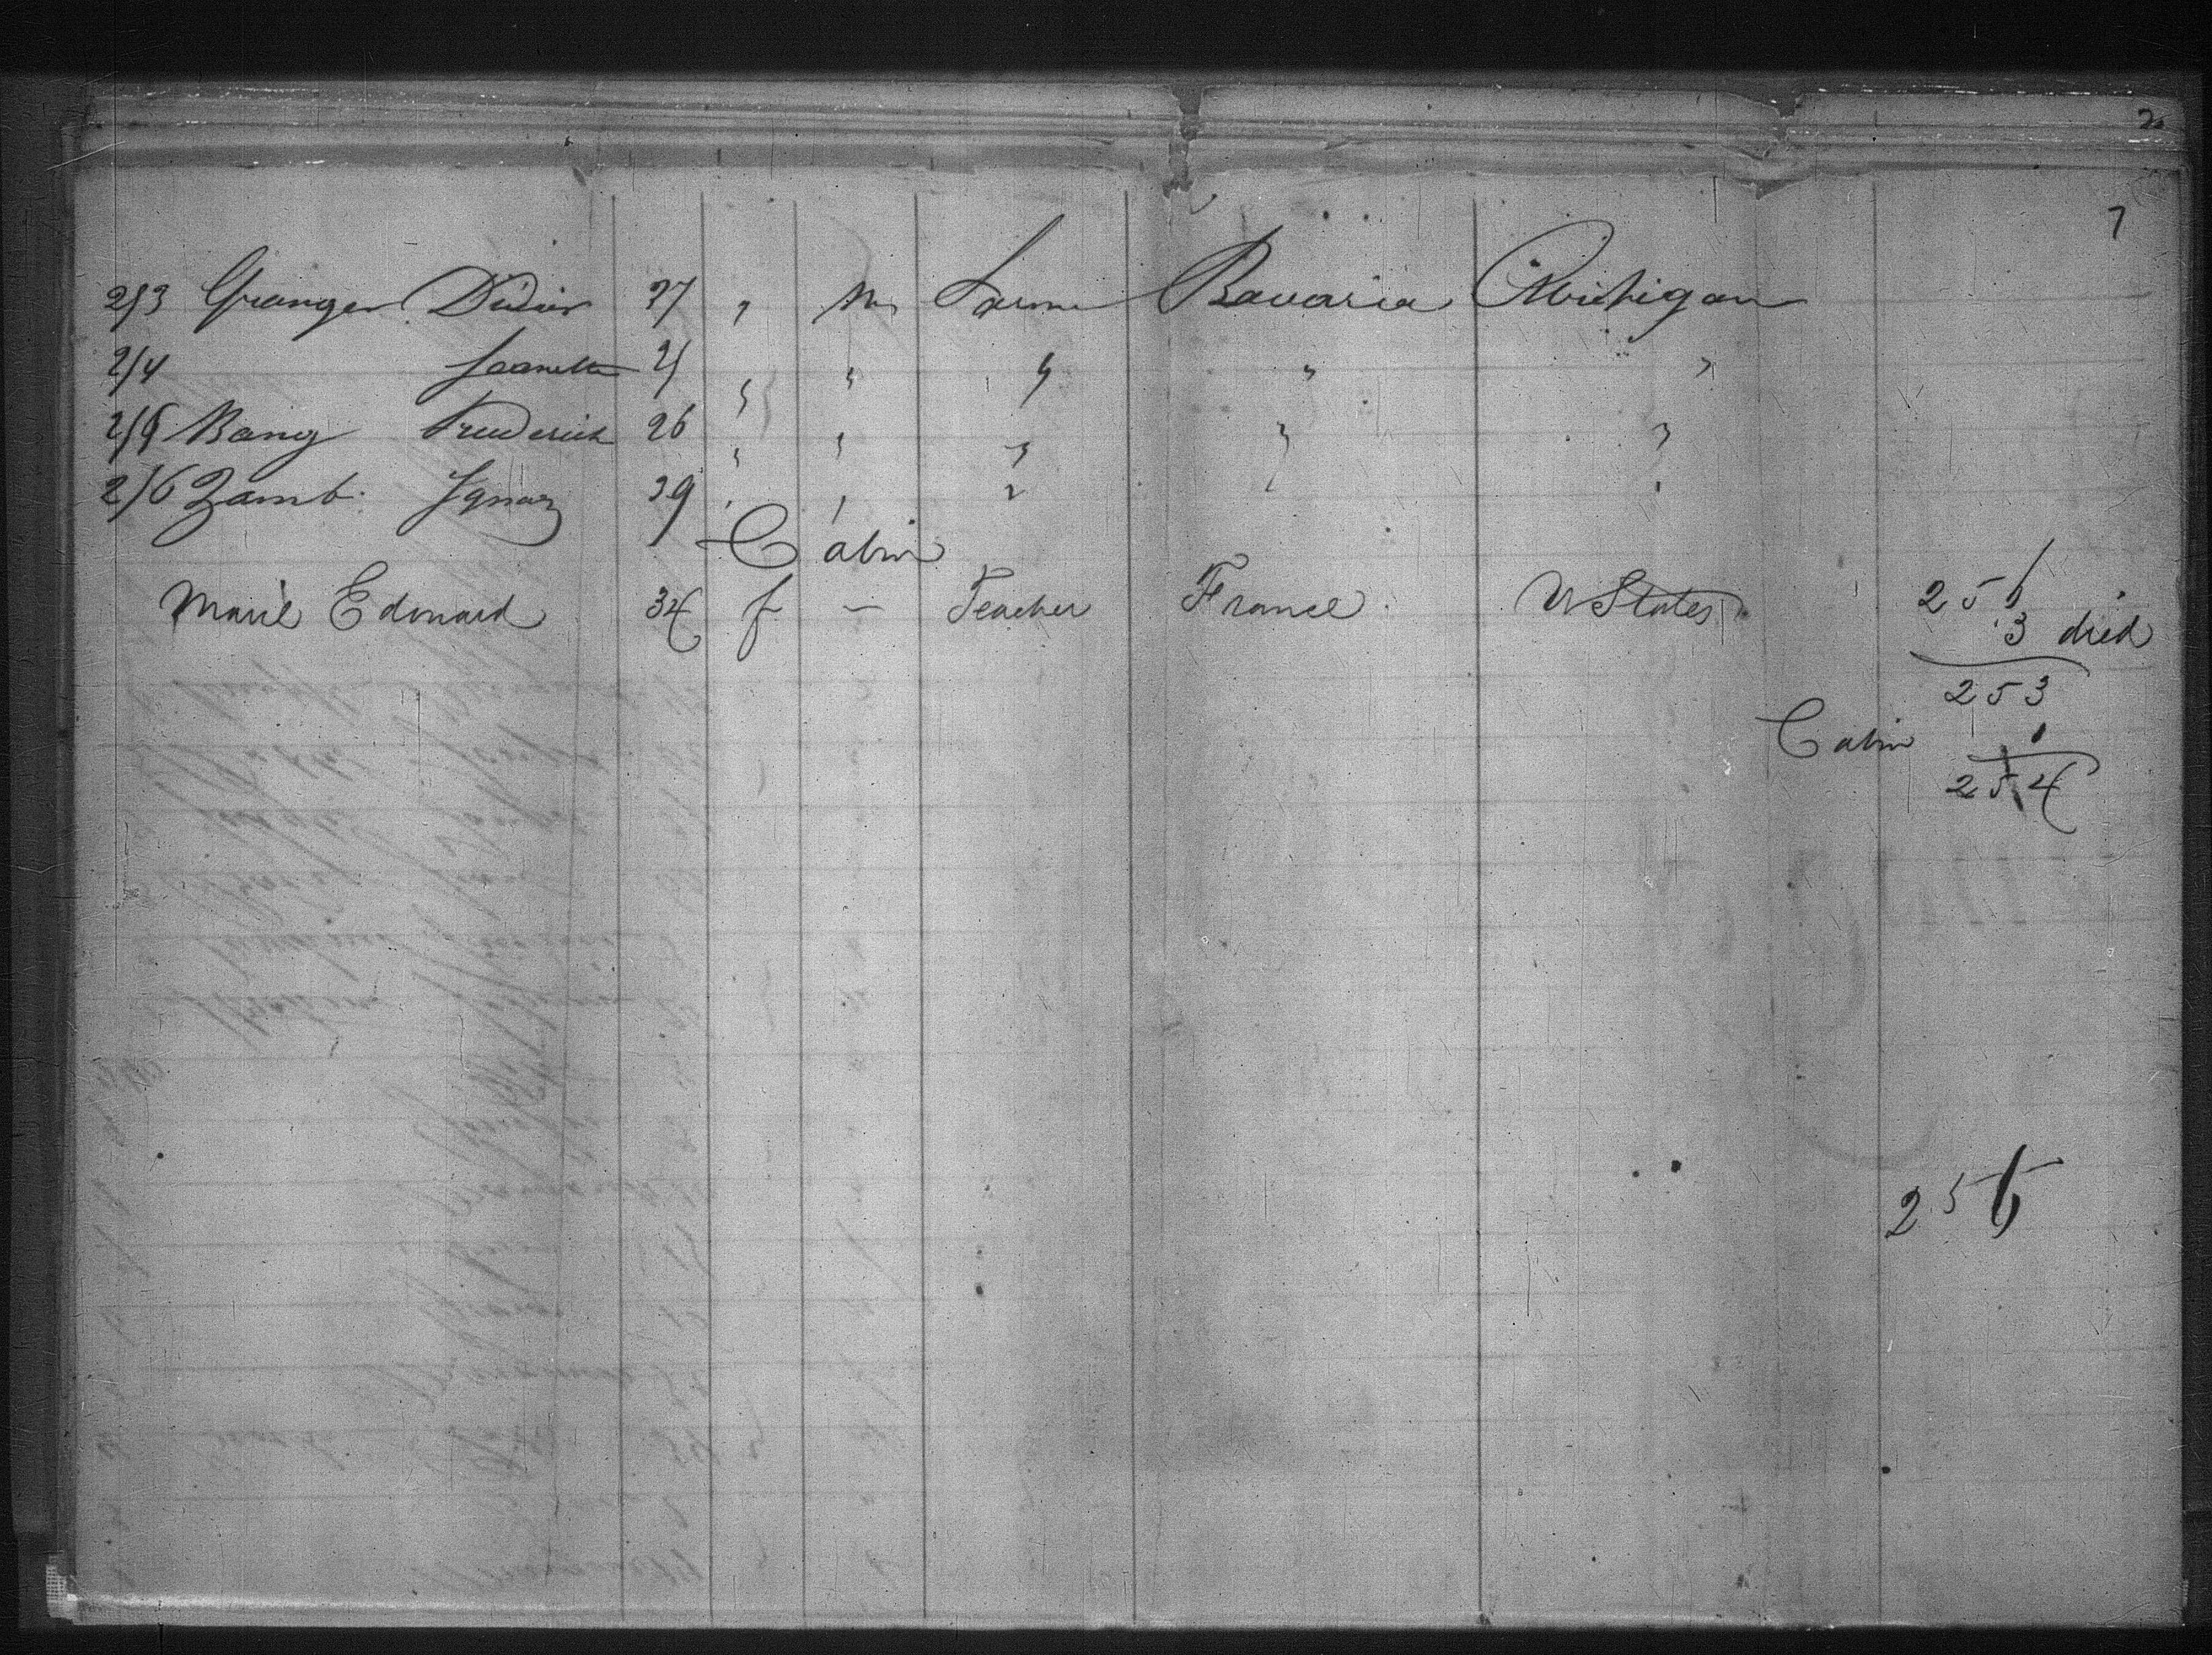 7
253 Granger Didier 37 " M Farmer Bavaria Michigan
254 Jeanette 25 " " " " "
255 Bang Frederick 26 " " " " "
256 Zamb. Ignaz 39 " " "
Cabin
Marie Edouard 34 f — Teacher France U States
256
3 died
253
Cabin 1
254
256